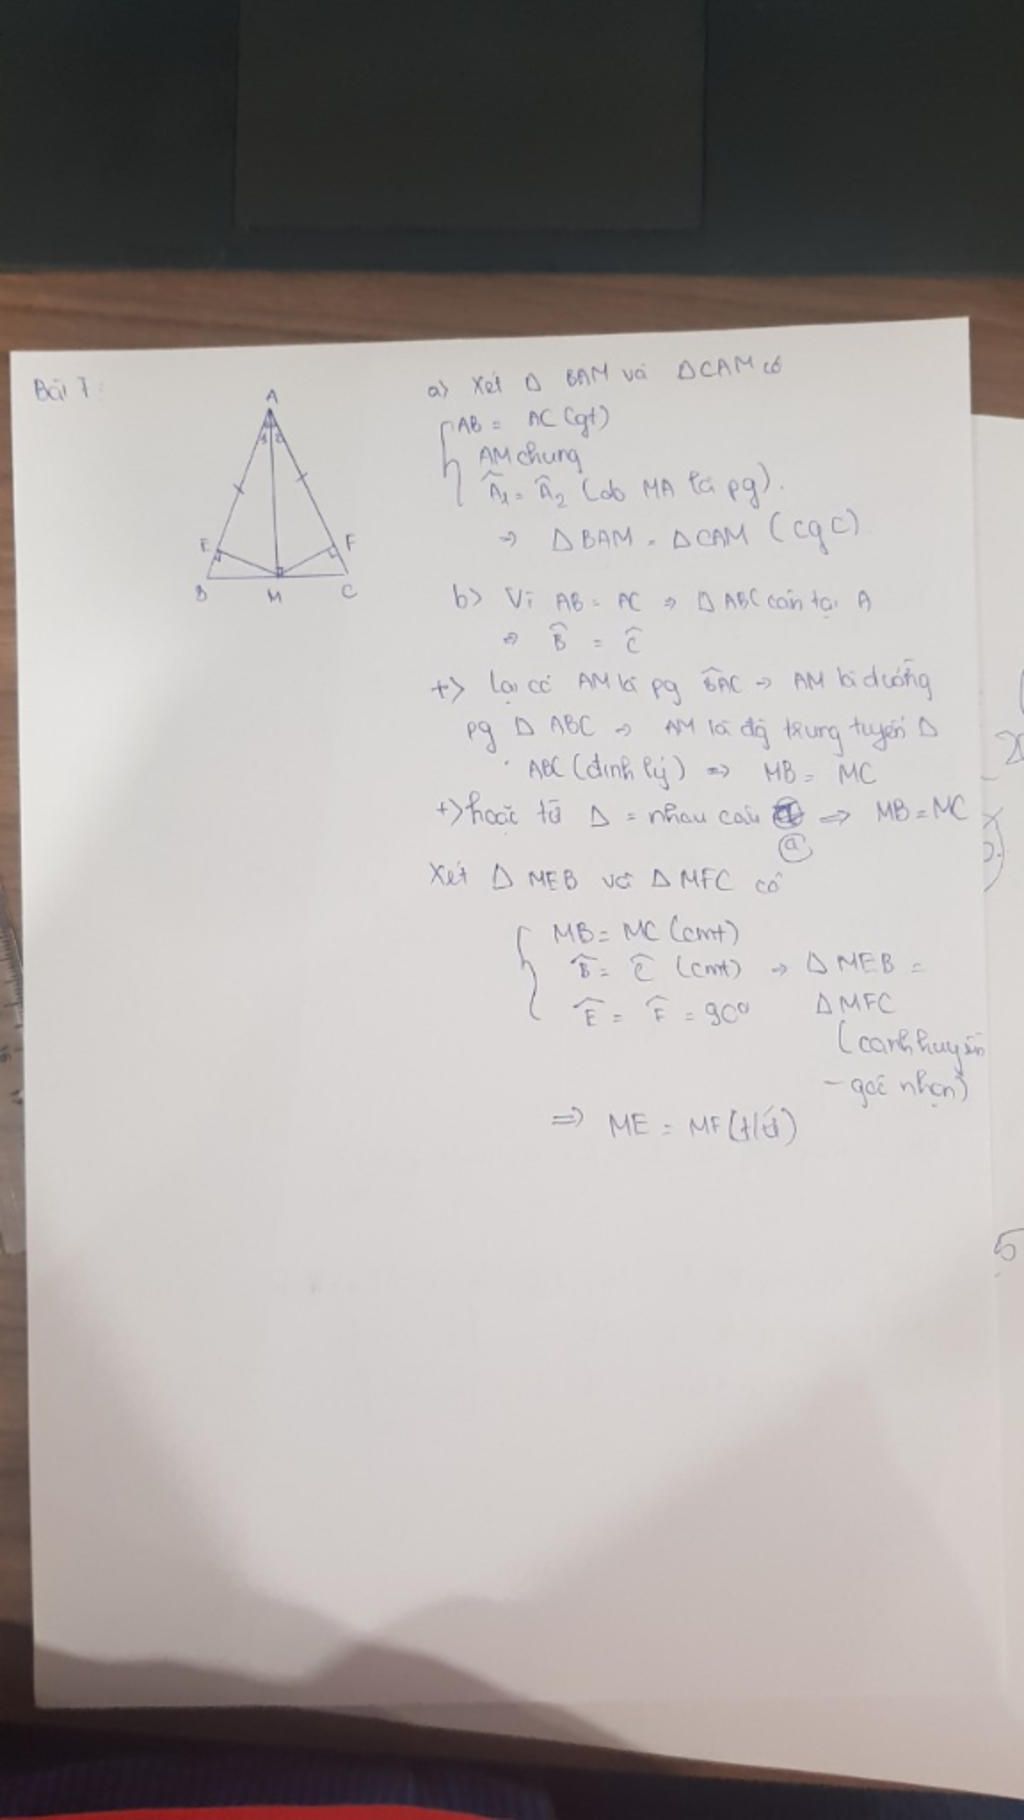 Bài 7:
A
1 2
E
F
B
M
C
a) Xét Δ BAM và ΔCAM có
AB = AC (gt)
AM chung
Â1 = Â2 (do MA là pg).
=> Δ BAM = ΔCAM (cgc)
b) Vì AB = AC => Δ ABC cân tại A
=> B̂ = Ĉ
+) Lại có AM là pg BÂC => AM là đường
pg Δ ABC => AM là đg trung tuyến Δ
ABC (định lý) => MB = MC
+) hoặc từ Δ = nhau câu => MB = MC
a
Xét Δ MEB và Δ MFC có
MB = MC (cmt)
B̂ = Ĉ (cmt) => Δ MEB =
Ê = F̂ = 90° ΔMFC
(cạnh huyền
- góc nhọn)
=> ME = MF (t/ứ)
5